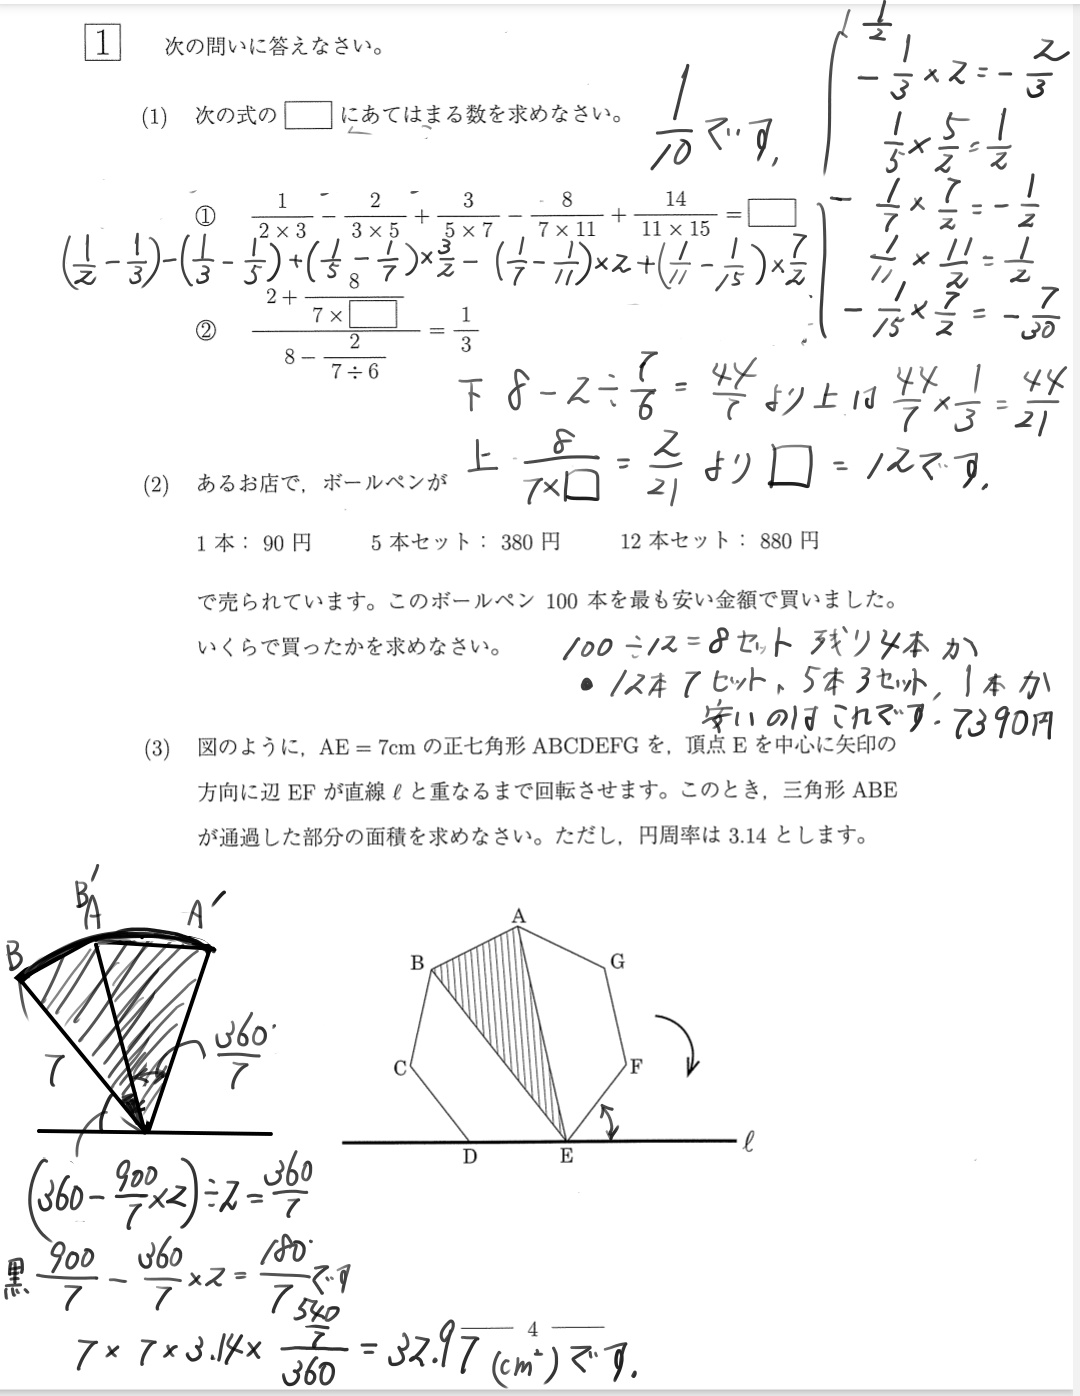 1 次の問いに答えなさい。
1/2
- 1/3 × 2 = - 2/3
(1) 次の式の □ にあてはまる数を求めなさい。
1/10 です.
1/5 × 5/2 = 1/2
① 1/(2×3) - 2/(3×5) + 3/(5×7) - 8/(7×11) + 14/(11×15) = □
- 1/7 × 7/2 = - 1/2
(1/2 - 1/3) - (1/3 - 1/5) + (1/5 - 1/7) × 3/2 - (1/7 - 1/11) × 2 + (1/11 - 1/15) × 7/2
1/11 × 11/2 = 1/2
- 1/15 × 7/2 = - 7/30
② (2 + 8/(7×□))/(8 - 2/(7÷6)) = 1/3
下 8 - 2 ÷ 7/6 = 44/7 より上は 44/7 × 1/3 = 44/21
上 8/(7×□) = 2/21 より □ = 12です.
(2) あるお店で，ボールペンが
1 本： 90 円 5 本セット： 380 円 12 本セット： 880 円
で売られています。このボールペン 100 本を最も安い金額で買いました。
いくらで買ったかを求めなさい。
100 ÷ 12 = 8セット 残り4本か
• 12本7セット、5本3セット, 1本か
安いのはこれです. 7390円
(3) 図のように，AE = 7cm の正七角形 ABCDEFG を，頂点 E を中心に矢印の
方向に辺 EF が直線 ℓ と重なるまで回転させます。このとき，三角形 ABE
が通過した部分の面積を求めなさい。ただし，円周率は 3.14 とします。
B'
A
A'
B
7
360°/7
A
B
G
C
F
D
E
ℓ
(360 - 900/7 × 2) ÷ 2 = 360/7
黒 900/7 - 360/7 × 2 = 180°/7 です
7 × 7 × 3.14 × (540/7)/360 = 32.97 (cm²) です.
4